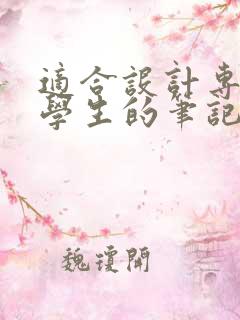 適合設計專
學生的筆記
魏瓊開